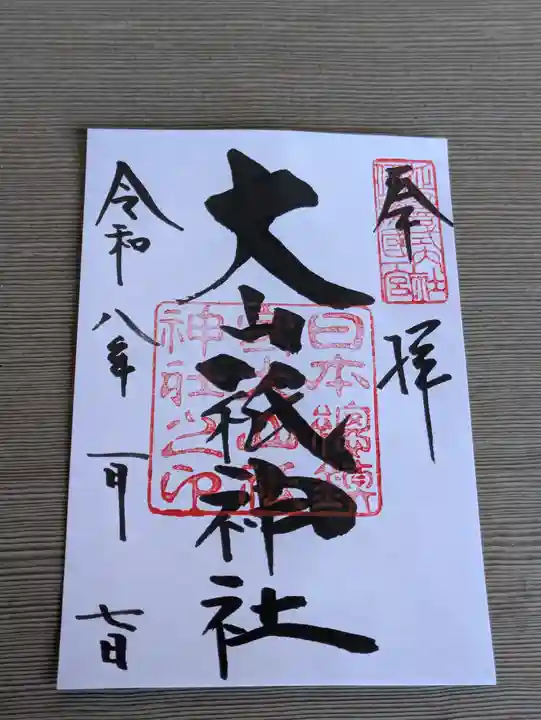 奉拝
大山祇神社
日本總鎮
守大山祇
神社之印
令和八年一月七日